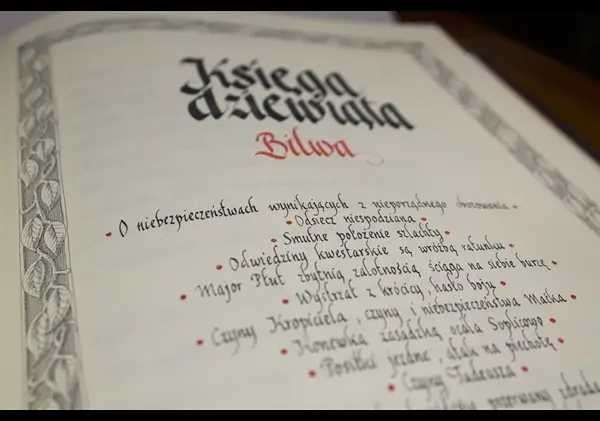 Księga
dziewiąta
Bitwa
• O niebezpieczeństwach wynikających z nieporządnego obozowania •
• Odsiecz niespodziana •
• Smutne położenie szlachty •
• Odwiedziny kwestarskie są wróżbą ratunku •
• Major Płut zbytnią zalotnością ściąga na siebie burzę •
• Wystrzał z krócicy, hasło boju •
• Czyny Kropiciela, czyny i niebezpieczeństwa Maćka •
• Konewka zasadzką ocala Soplicowo •
• Posiłki jezdne, atak na piechotę •
• Czyny Tadeusza •
przerwany zdradą